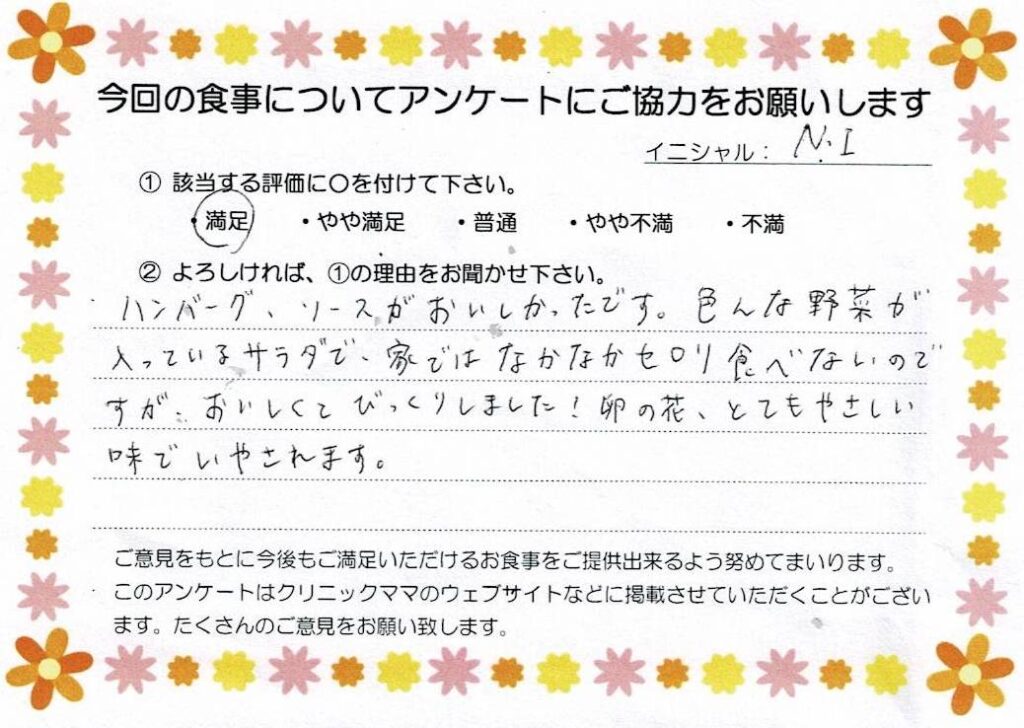 今回の食事についてアンケートにご協力をお願いします
イニシャル： N.I
① 該当する評価に〇を付けて下さい。
・満足 ・やや満足 ・普通 ・やや不満 ・不満
② よろしければ、①の理由をお聞かせ下さい。
ハンバーグ、ソースがおいしかったです。色んな野菜が
入っているサラダで、家ではなかなかセロリ食べないので
すが、おいしくてびっくりしました！卵の花、とてもやさしい
味でいやされます。
ご意見をもとに今後もご満足いただけるお食事をご提供出来るよう努めてまいります。
このアンケートはクリニックママのウェブサイトなどに掲載させていただくことがござい
ます。たくさんのご意見をお願い致します。